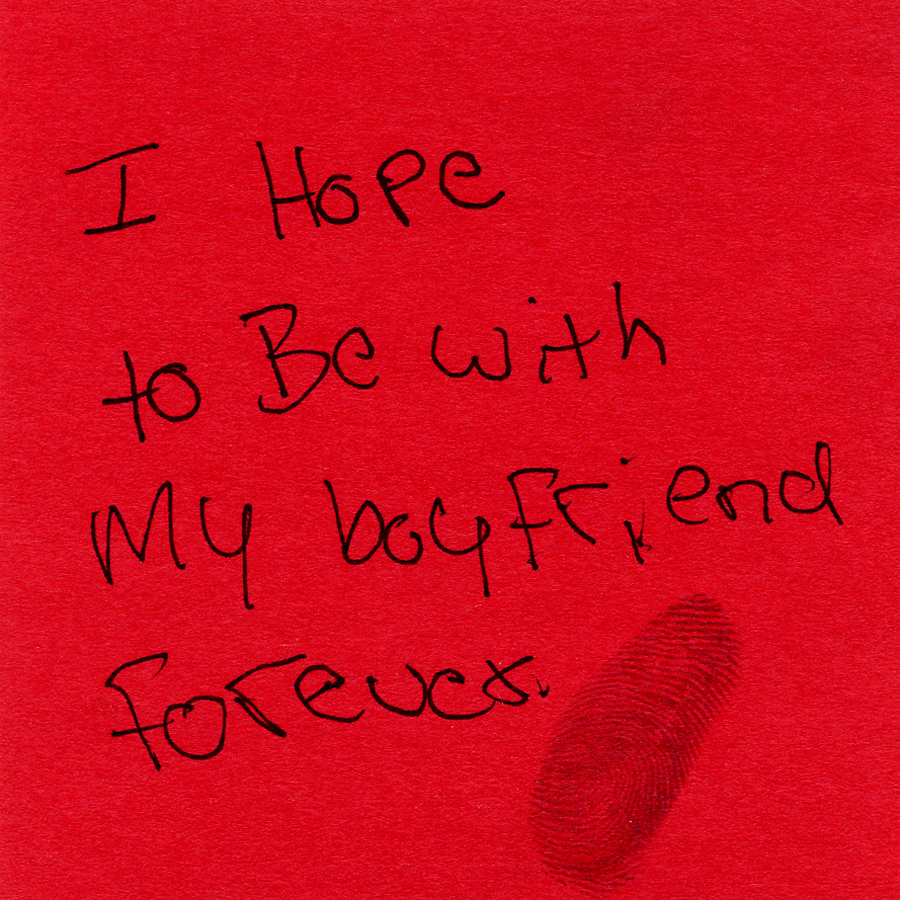 I Hope
to Be with
My boyfriend
forever.